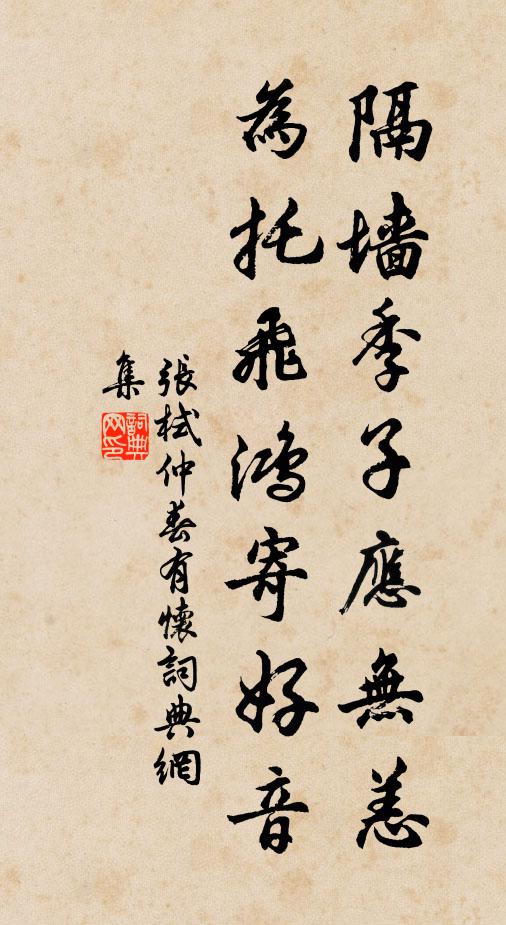 隔墙季子應無恙
為托飛鴻寄好音
張栻仲春有懷詞典網
集
詞典网印